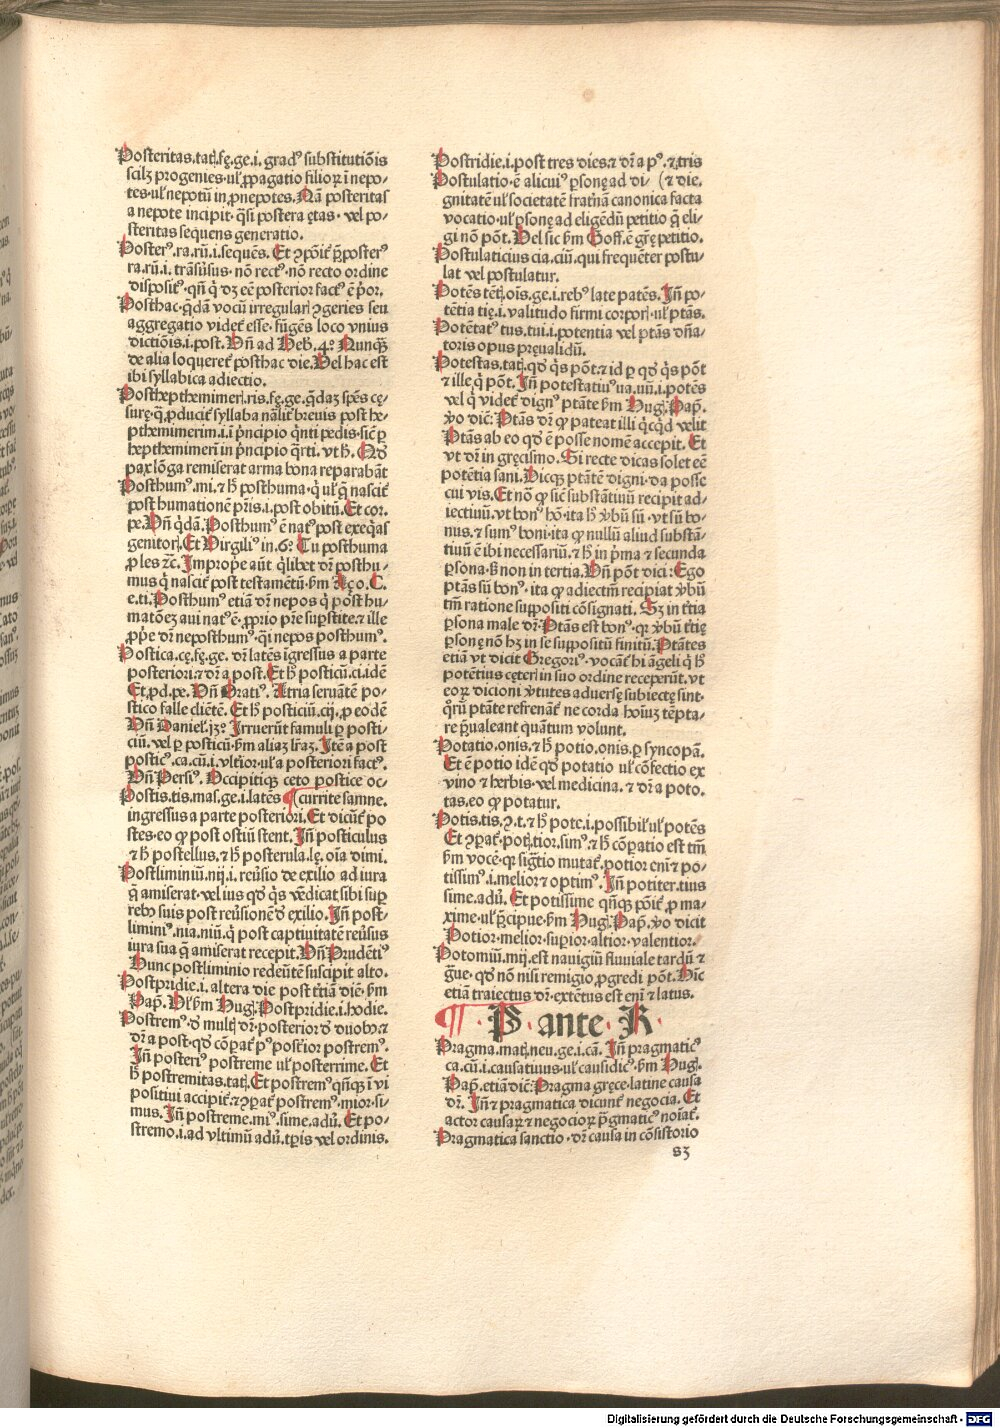 Posteritas.tatꝭ.fę.ge.i. gradꝰ substitutiōis
scilꝫ progenies. uł ꝓpagatio filioꝝ ī nepo⸗
tes. uł nepotū in ꝓnepotes. Nā posteritas
a nepote incipit. q̄si postera ętas. vel po⸗
steritas sequens generatio.
Posterꝰ.ra.rū.i. sequēs. Et ꝯpōiť p̄posterꝰ
ra.rū.i. trāsūsus. nō rectꝰ. nō recto ordine
dispositꝰ. qn̄ qͥ dꝫ eē posterior factꝰ ē p̄or.
Posthac. q̄dā vocū irregularꝭ ꝯgeries seu
aggregatio videť esse. fūgēs loco vnius
dictiōis.i.post. Vn̄ ad Heb̄.4º. Nunqꝫ
de alia loquereť posthac die. Vel hac est
ibi syllabica adiectio.
Posthepthemimerꝭ.ris.fę.ge. q̄daꝫ spēs cę⸗
surę. q̄ ꝓduciť syllaba nāliť brevis post he⸗
pthemimerim.i.ī p̄ncipio q̄nti pedis. sic̄ ꝑ
hepthemimerī in p̄ncipio q̄rti. vt h̄. Qð
pax lōga remiserat arma bona reparabāt
Posthumꝰ.mi. ⁊ h̄ posthuma. qͥ uł q̄ nasciť
post humationē p̄ris.i. post obitū. Et cor.
pe. Vn̄ q̄dā. Posthumꝰ ē natꝰ post exeq̄as
genitorꝭ. Et Virgiliꝰ in.6º. Tu posthuma
ꝓles ⁊c̄. Improp̄e aūt qͥlibet dr̄ posthu⸗
mus qͥ nasciť post testamētū. ẜm Aço.C.
e.ti. Posthumꝰ etiā dr̄ nepos qͥ post hu⸗
matōeꝫ aui natꝰ ē. ꝓprio pr̄e sup̱stite. ⁊ ille
ꝓp̄e dr̄ neposthumꝰ. qͥ i nepos posthumꝰ.
Postica.cę.fę.ge. dr̄ latēs īgressus a parte
posteriori. ⁊ dr̄ a post. Et h̄ posticū.ci.idē
Et.ꝓd.pe. Vn̄ Oratiꝰ. Atria seruātē po⸗
stico falle cliētē. Et h̄ posticiū.cij. ꝓ eodē
Vn̄ Danieł.13º. Irruerūt famuli ꝑ posti⸗
ciū. vel ꝑ posticū. ẜm aliaꝫ lr̄aꝫ. Itē a post
posticꝰ.ca.cū.i. vltīor. uł a posteriori factꝰ.
Vn̄ Persiꝰ. Occipitiqꝫ cęto postice oc⸗
Postis.tis.mas.ge.i. latēs ¶ (currite samne.
ingressus a parte posteriori. Et dicūť po
stes. eo ꝙ post ostiū stent. Jn̄ posticulus
⁊ h̄ postellus. ⁊ h̄ posterula.lę. oīa dimi.
Postliminiū.nij.i. reūsio de exilio ad iura
q̄ amiserat. vel ius qð qͥs vēdicat sibi sup̱
rebꝰ suis post reūsionē ð exilio. Jn̄ post⸗
liminiꝰ.nia.niū. qͥ post captiuitatē reūsus
iura sua q̄ amiserat recepit. Vn̄ Prudētiꝰ
Hunc postliminio redeūtē suscipit alto.
Postpridie.i. altera die post tr̄tiā diē. ẜm
Pap̄. Vł ẜm Hug̱. Postpridie.i. hodie.
Postremꝰ. ð mulťꝭ dr̄. posterior ð duobꝰ. ⁊
dr̄ a post. qð cōp̱at̄ pꝰ post̄ior postremꝰ.
Jn̄ posteriꝰ postreme uł posterrime. Et
h̄ postremitas.tatꝭ. Et postremꝰ qn̄qꝫ i vi
positiui accipiť. ⁊ ꝯp̱ať postremꝰ.mior.si⸗
mus. Jn̄ postreme.miꝰ.sime.adū. Et po⸗
stremo.i. ad vltimū adū. tp̱is vel ordinis.
Postridie.i. post tres dies. ⁊ dr̄ a pꝰ. ⁊ tris
Postulatio. ē alicuiꝰ ꝑsonę ad di⸗ (⁊ die.
gnitatē uł societatē frat̄nā canonica facta
vocatio. uł ꝑsonę ad eligēdū petitio q̄ eli⸗
gi nō pōt. Vel sic ẜm Goff. ē gr̄ę petitio.
Postulaticius cia.ciū. qui frequēter postu⸗
lat vel postulatur.
Potēs tētꝭ.oīs.ge.i. rebꝰ late patēs. Jn̄ po⸗
tētia tię.i. valitudo firmi corporꝭ uł ptās.
Potētatꝰ tus.tui.i. potentia vel ptās dn̄a⸗
toris opus pręualidū.
Potestas.tatꝭ. qð qͥs pōt. ⁊ id ꝑ qð qͥs pōt
⁊ ille qͥ pōt. Jn̄ potestatiuꝰ ua.uū.i. potēs
vel qͥ videť dignꝰ ptāte ẜm Hug̱. Pap̄.
ꝟo dic̄. Ptās dr̄ ꝙ pateat illi qͥcqͥd velit
Ptās ab eo qð ē posse nomē accepit. Et
vt dr̄ in gręcismo. Si recte dicas solet eē
potētia sani. Dicqꝫ ptātē digni. da posse
cui vis. Et nō ꝙ sic̄ substātiuū recipit ad⸗
iectiuū. vt bonꝰ hō. ita h̄ ꝟbū sū. vt sū bo⸗
nus. ⁊ sumꝰ boni. ita ꝙ nullū aliud substā⸗
tiuū ē ibi necessariū. ⁊ h̄ in p̄ma ⁊ secunda
ꝑsona. ẜ non in tertia. Vn̄ pōt dici: Ego
ptās sū bonꝰ. ita ꝙ adiectm̄ recipiat ꝟbū
tm̄ ratione suppositi cōsignati. Sꝫ in tr̄tia
ꝑsona male dr̄. Ptās est bonꝰ. qꝛ ꝟbū tr̄tię
ꝑsonę nō hꝫ in se suppositū finitū. Ptātes
etiā vt dicit Gregoriꝰ. vocāť hi āgeli qͥ h̄
potētius cęterꝭ in suo ordine receperūt. vt
eoꝝ dicioni ꝟtutes aduersę subiectę sint.
qꝝ ptāte refrenāť ne corda hoīuꝫ tēpta⸗
re p̄ualeant quātum volunt.
Potatio.onis. ⁊ h̄ potio.onis. ꝑ syncopā.
Et ē potio idē qð potatio uł cōfectio ex
vino ⁊ herbis. vel medicina. ⁊ dr̄ a poto.
tas. eo ꝙ potatur.
Potis.tis. ⁊.t. ⁊ h̄ pote.i. possibił uł potēs
Et ꝯp̱ať. potꝭ.tior.simꝰ. ⁊ h̄ cōp̱atio est tm̄
ẜm vocē. qꝛ sigt̄io mutať. potior enī ⁊ po⸗
tissimꝰ.i. melior ⁊ optimꝰ. Jn̄ potiter.tius
sime.adū. Et potissime qn̄qꝫ pōiť ꝓ ma⸗
xime. uł p̄cipue. ẜm Hug̱. Pap̄. ꝟo dicit
Potior. melior. supior. altior. valentior.
Potomiū.mij. est nauigiū fluuiale tardū ⁊
g̱ue. qð nō nisi remigio ꝓgredi pōt. Hic
etiā traiectus dr̄. extētus est enī ⁊ latus.
¶ · P · ante · R ·
Pragma.matꝭ.neu.ge.i. cā. Jn̄ pragmaticꝰ
ca.cū.i. causatiuus. uł causidicꝰ. ẜm Hug̱.
Pap̄. etiā dic̄: Pragma gręce. latine causa
dr̄. Jn̄ ⁊ pragmatica dicunť negocia. Et
actor causaꝝ ⁊ negocioꝝ p̄gmaticꝰ noīať.
Pragmatica sanctio. dr̄ causa in cōsistorio
s3
Digitalisierung gefördert durch die Deutsche Forschungsgemeinschaft - DFG